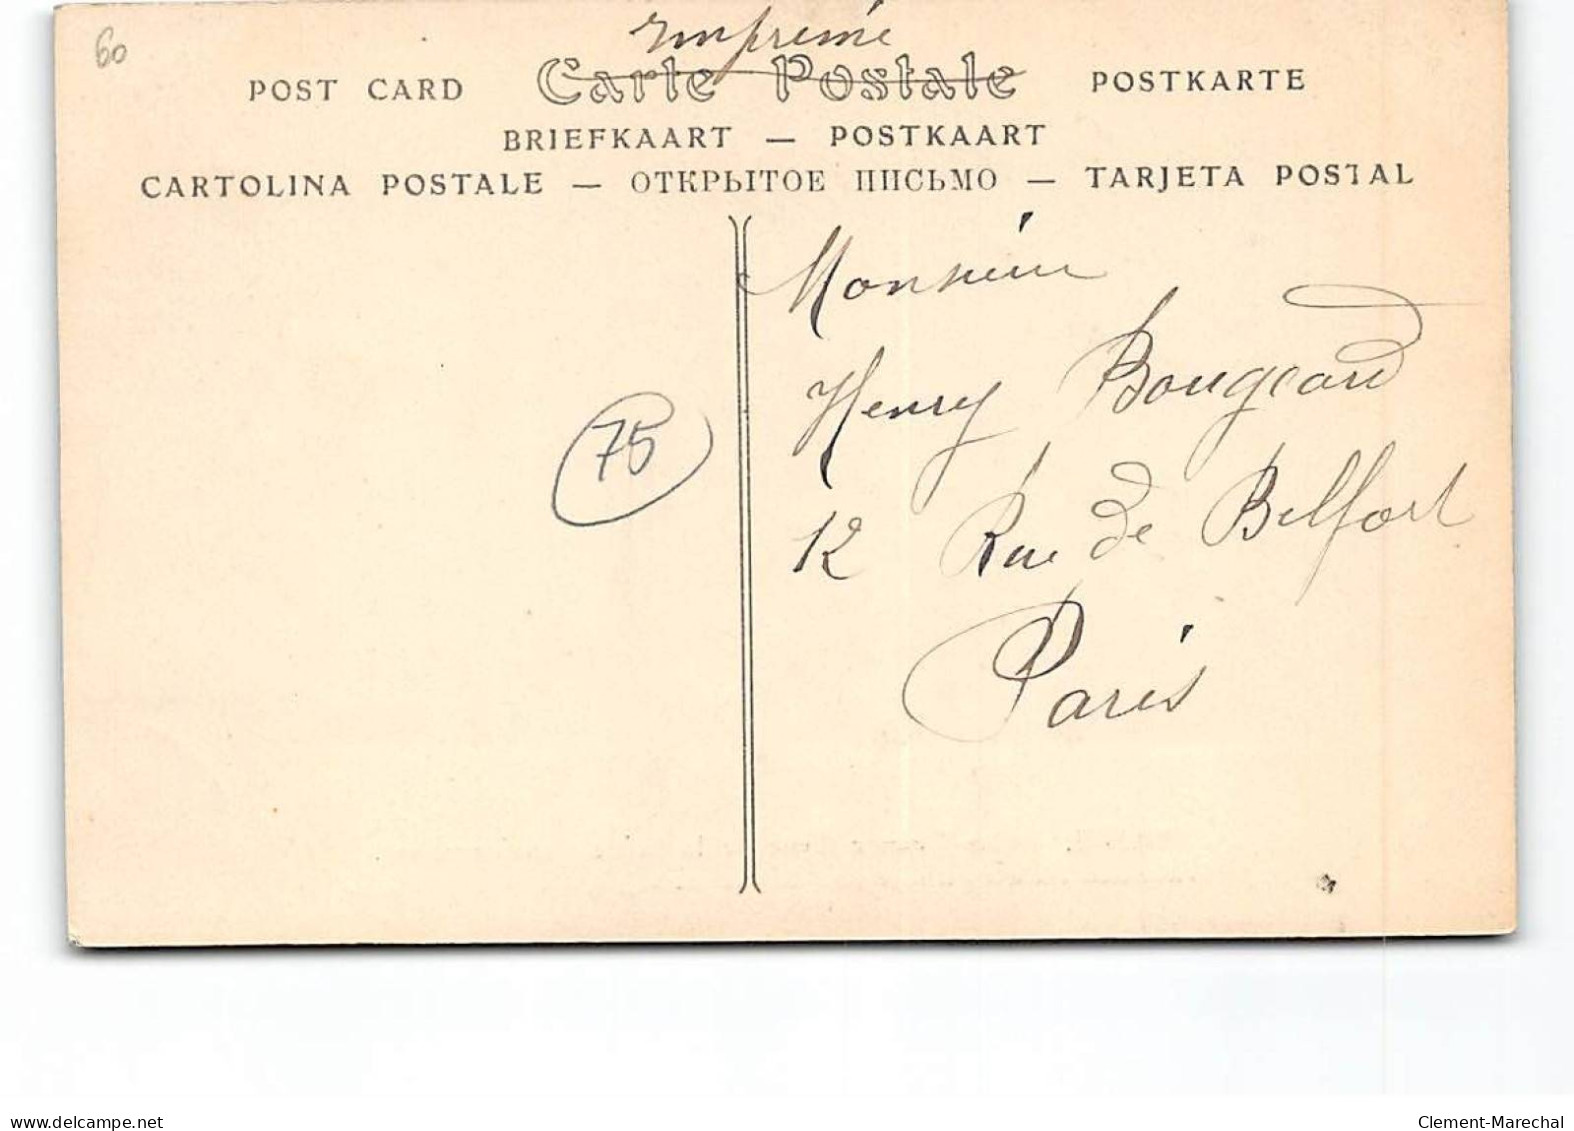 60
Imprimé
POST CARD Carte Postale POSTKARTE
BRIEFKAART — POSTKAART
CARTOLINA POSTALE — ОТКРЫТОЕ ПИСЬМО — TARJETA POSTAL
Monsieur
Henry Bougeard
75
12 Rue de Belfort
Paris
www.delcampe.net
Clement-Marechal